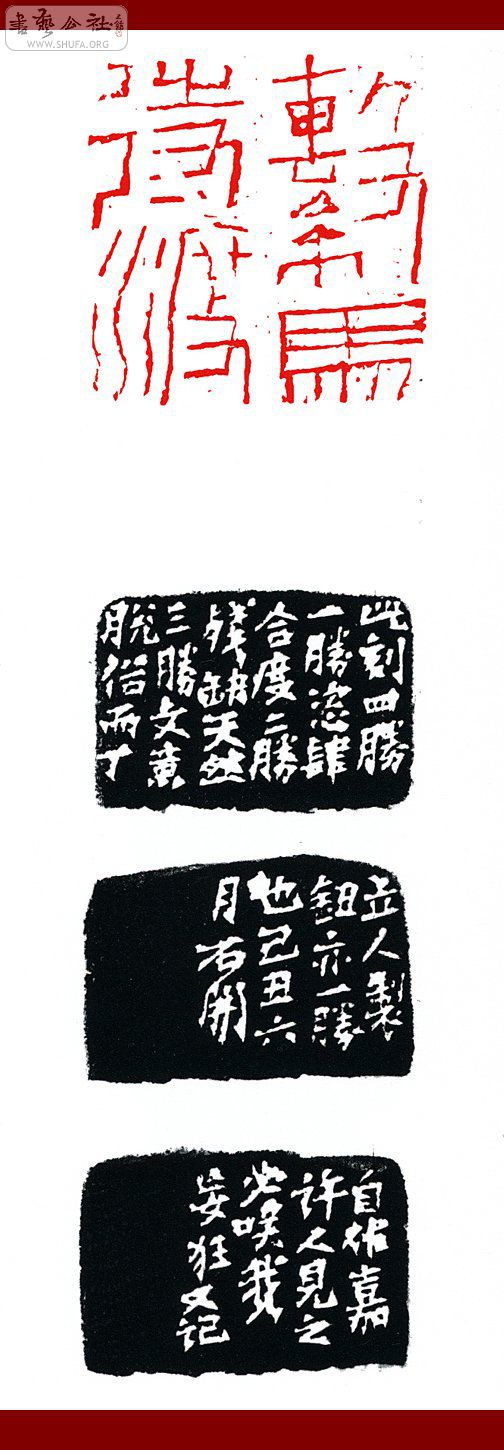 書藝公社
WWW.SHUFA.ORG
馬
此刻四勝
一勝恣肆
合度二勝
殘缺天然
三勝文黄
脱俗而丁
丘人製
鈕亦一勝
也己丑六
月石開
自作嘉
許人見之
必咲我
妄狂又记